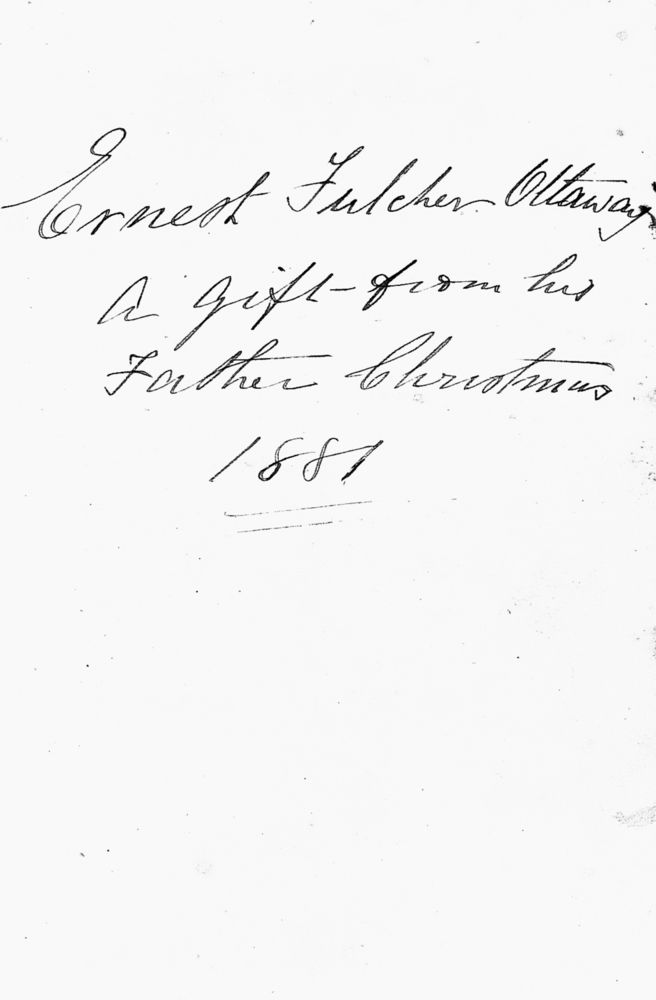 Ernest Fulcher Ottaway
A gift from his
Father Christmas
1881